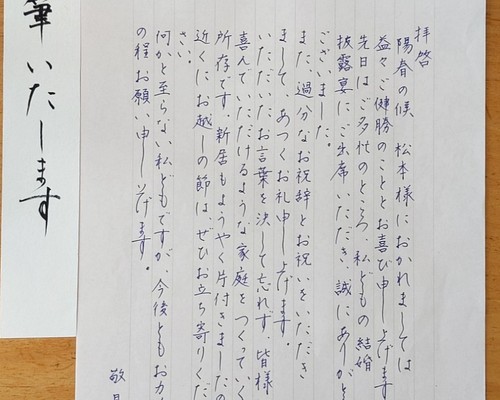 拝啓
陽春の候 松本様におかれましては
益々ご健勝のこととお喜び申し上げます
先日はご多忙のところ、私どもの結婚
披露宴にご出席いただき、誠にありがと
ございました。
また、過分なお祝辞とお祝いをいただき
まして、あつくお礼申し上げます。
いただいたお言葉を決して忘れず、皆様
喜んでいただけるような家庭をつくっていく
所存です。新居もようやく片付きましたの
近くにお越しの節は、ぜひお立ち寄りくだ
さい。
何かと至らない私どもですが、今後ともお力
の程お願い申し上げます。
敬具
筆いたします